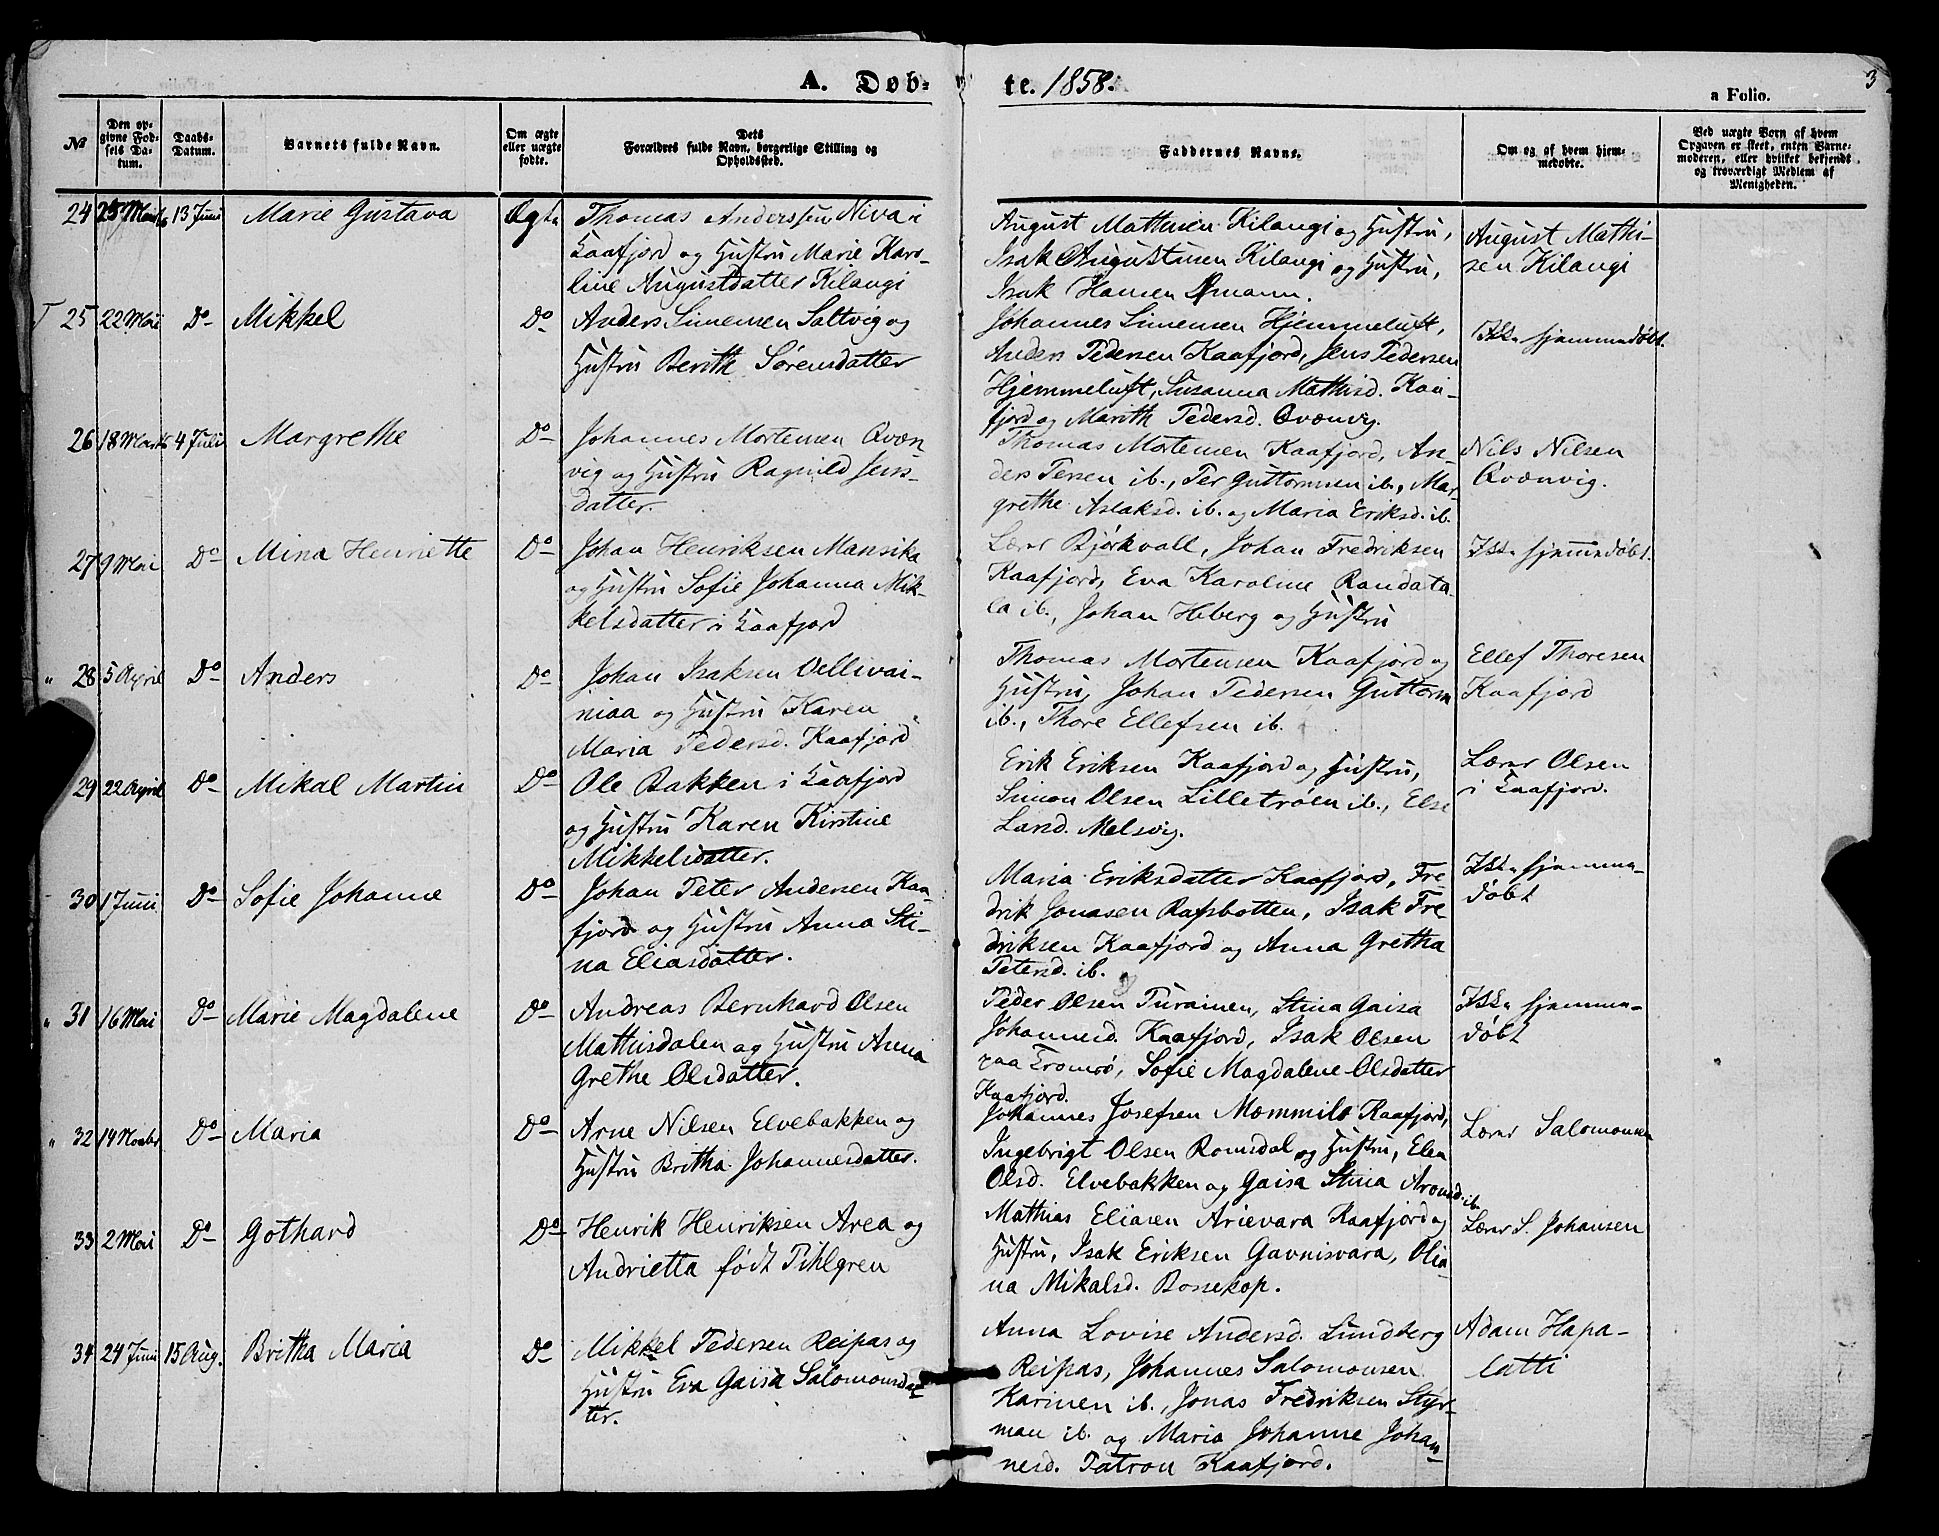 A. Døb-
te. 1858.
3
a Folio.
№
Den op-
givne Fød-
sels Da-
tum.
Daabs-
Datum.
Barnets fulde Navn.
Om ægte
eller uægte
fødte.
Dets
Forældres fulde Navn, borgerlige Stilling og
Opholdssted.
Faddernes Navne.
Om og af hvem hjem-
medøbte.
Ved uægte Børn af hvem
Opgaven er skeet, enten Barne-
moderen, eller hvilket bekjendt
og troværdigt Medlem af
Menigheden.
24 13 Juni Marie Gustava Ægte
Thomas Anderssen Niva i
Kaafjord og Hustru Marie Karo-
line Augustdatter Kilangi
August Mathisen Kilangi og Hustru,
Isak Augustinsen Kilangi og Hustru,
Isak Hansen
August Mathi-
sen Kilangi
25 22 Mai Do Mikkel Do
Anders Simensen Saltvig og
Hustru Berith Sørensdatter
Johannes Simensen Hjemmeluft,
Anders Pedersen Kaafjord, Jens Pedersen
Hjemmeluft, Susanna Mathisd. Kaa-
fjord og Marith Pedersd. Qvænvig.
Ikke hjemmedøbt.
26 18 Marts 4 Juli Margrethe Do
Johannes Mortensen Qvæn-
vig og Hustru Ragnild Jens-
datter.
Thomas Mortensen Kaafjord, An-
ders Persen ib., Per Guttormsen ib., Mar-
grethe Aslaksd. ib. og Maria Eriksd. ib.
Nils Nilsen
Qvænvig.
27 9 Mai Do Mina Henriette Do
Johan Henriksen Mansika
og Hustru Sofie Johanna Mik-
kelsdatter i Kaafjord
Lærer Bjørkvall, Johan Fredriksen
Kaafjord, Eva Karoline Randata-
la ib., Johan Heberg og Hustru
Ikke hjemmedøbt.
" 28 5 April Do Anders Do
Johan Isaksen Oellivai-
niaa og Hustru Karen
Maria Pedersd. Kaafjord
Thomas Mortensen Kaafjord og
Hustru, Johan Pedersen Guttorm
ib., Thore Ellefsen ib.
Ellef Thoresen
Kaafjord
29 22 April Do Mikal Martin Do
Ole Bakken i Kaafjord
og Hustru Karen Kirstine
Mikkelsdatter.
Erik Eriksen Kaafjord og Hustru,
Simon Olsen Lilletrøen ib., Else
Larsd. Melsvig.
Lærer Olsen
i Kaafjord.
30 1 Juni Do Sofie Johanne Do
Johan Peter Andersen Kaa-
fjord og Hustru Anna Sti-
na Eliasdatter.
Maria Eriksdatter Kaafjord, Fre-
drik Jonasen Rafsbotten, Isak Fre-
driksen Kaafjord og Anna Gretha
Petersd. ib.
Ikke hjemme-
døbt
" 31 16 Mai Do Marie Magdalene Do
Andreas Bernhard Olsen
Mathisdalen og Hustru Anna
Grethe Olsdatter.
Peder Olsen Turainen, Stina Gaisa
Johannesd. Kaafjord, Isak Olsen
paa Tromsø, Sofie Magdalene Olsdatter
Kaafjord.
Ikke hjemme-
døbt
" 32 14 Novbr Do Maria Do
Arne Nilsen Elvebakken og
Hustru Britha Johannesdatter.
Johannes Josefsen Mommilo Kaafjord,
Ingebrigt Olsen Romsdal og Hustru, Elen
Olsd. Elvebakken og Gaisa Stina Aronsd. ib.
Lærer Salomonsen
33 2 Mai Do Gothard Do
Henrik Henriksen Area og
Andrietta født Pihlgren
Mathias Eliasen Arievara Kaafjord og
Hustru, Isak Eriksen Gavnisvara, Olia-
na Mikalsd. Bossekop.
Lærer S. Johansen
34 24 Juni 15 Aug. Britha Maria Do
Mikkel Pedersen Reipas og
Hustru Eva Gaisa Salomonsdat-
ter.
Anna Lovise Andersd. Lundberg
Reipas, Johannes Salomonsen
Karinen ib., Jonas Fredriksen Styr-
man ib. og Maria Johanne Johan-
nesd. Patron Kaafjord.
Adam Hapa-
latti